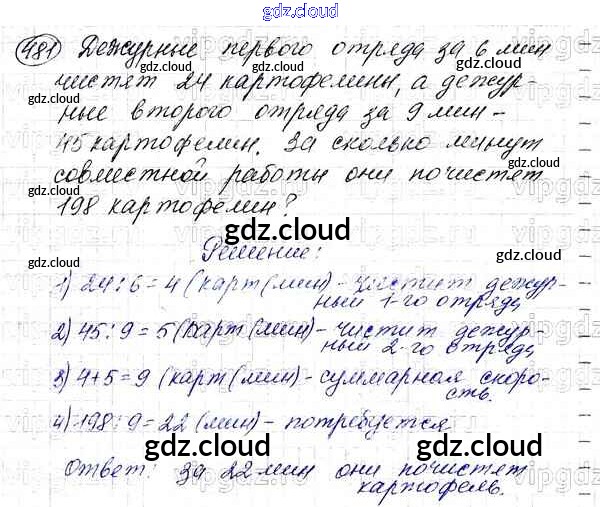 gdz.cloud
481 Дежурные первого отряда за 6 мин
чистят 24 картофелины, а дежур-
ные второго отряда за 9 мин -
45 картофелин. За сколько минут
совместной работы они почистят
198 картофелин?
Решение:
1) 24:6=4 (карт/мин) - чистит дежур-
ный 1-го отряда
2) 45:9=5 (карт/мин) - чистит дежур-
ный 2-го отряда
3) 4+5=9 (карт/мин) - суммарная скоро-
сть.
4) 198:9=22 (мин) - потребуется
gdz.cloud
Ответ: за 22 мин они почистят
картофель.